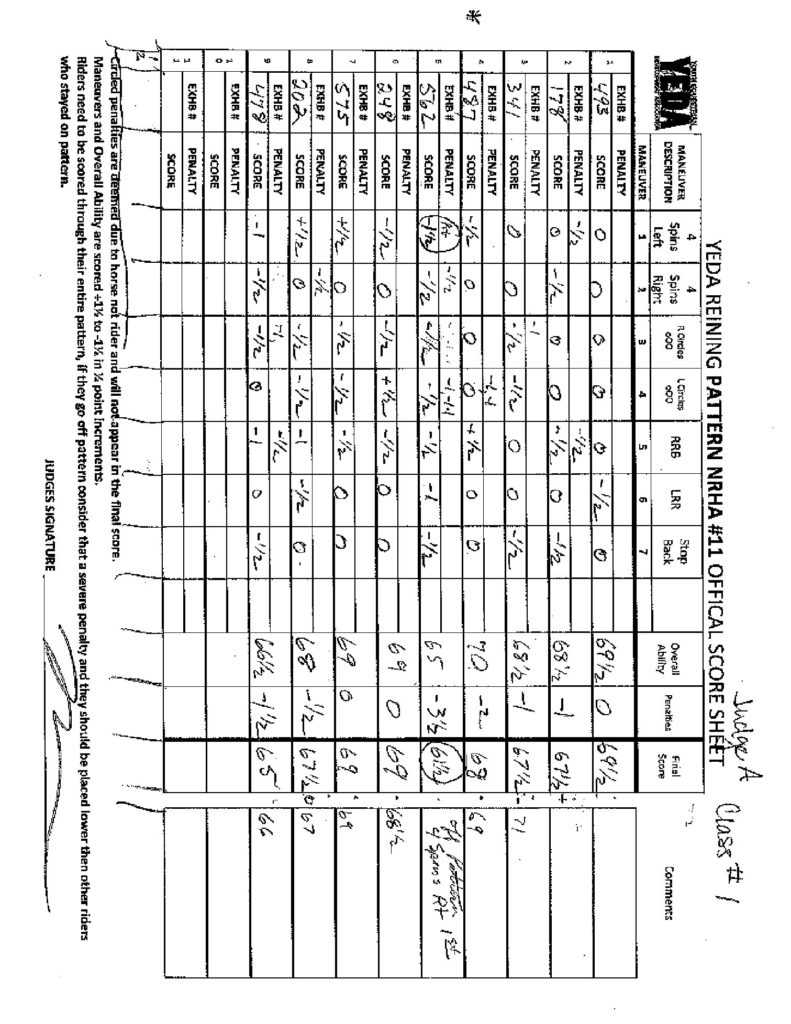 Judge A Class # 1
YEDA REINING PATTERN NRHA #11 OFFICAL SCORE SHEET
YEDA
MANEUVER DESCRIPTION 4 Spins Left 4 Spins Right R Circles L Circles RRB LRR Stop Back Overall Ability Penalties Final Score Comments
MANEUVER 1 2 3 4 5 6 7
1 EXHB # PENALTY
493 SCORE 0 0 0 0 0 -1/2 0 69 1/2 0 69 1/2
2 EXHB # PENALTY -1/2 -1/2
178 SCORE 0 -1/2 0 0 -1/2 0 -1/2 68 1/2 -1 67 1/2 +
3 EXHB # PENALTY -1
341 SCORE 0 0 -1/2 -1/2 0 0 -1/2 68 1/2 -1 67 1/2 - 71
4 EXHB # PENALTY
487 SCORE -1/2 0 0 0 +1/2 0 0 70 -2 68 69
5 EXHB # PENALTY -1/2
562 SCORE -1 1/2 -1/2 -1/2 -1/2 -1 -1/2 65 -3 1/2 61 1/2 off Pattern
4 Spins Rt 1st
6 EXHB # PENALTY
248 SCORE -1/2 0 -1/2 +1/2 -1/2 0 0 69 0 69 68 1/2
7 EXHB # PENALTY
575 SCORE +1/2 0 -1/2 -1/2 -1/2 0 0 69 0 69 69
8 EXHB # PENALTY -1/2
202 SCORE +1/2 0 -1/2 -1/2 -1 -1/2 0 68 -1/2 67 1/2 67
9 EXHB # PENALTY -1 -1/2
478 SCORE -1 -1/2 -1/2 0 -1 0 -1/2 66 1/2 -1 1/2 65 66
10 EXHB # PENALTY
SCORE
11 EXHB # PENALTY
SCORE
Circled penalties are deemed due to horse not rider and will not appear in the final score.
Maneuvers and Overall Ability are scored +1½ to -1½ in ½ point increments.
Riders need to be scored through their entire pattern, if they go off pattern consider that a severe penalty and they should be placed lower then other riders
who stayed on pattern.
JUDGES SIGNATURE